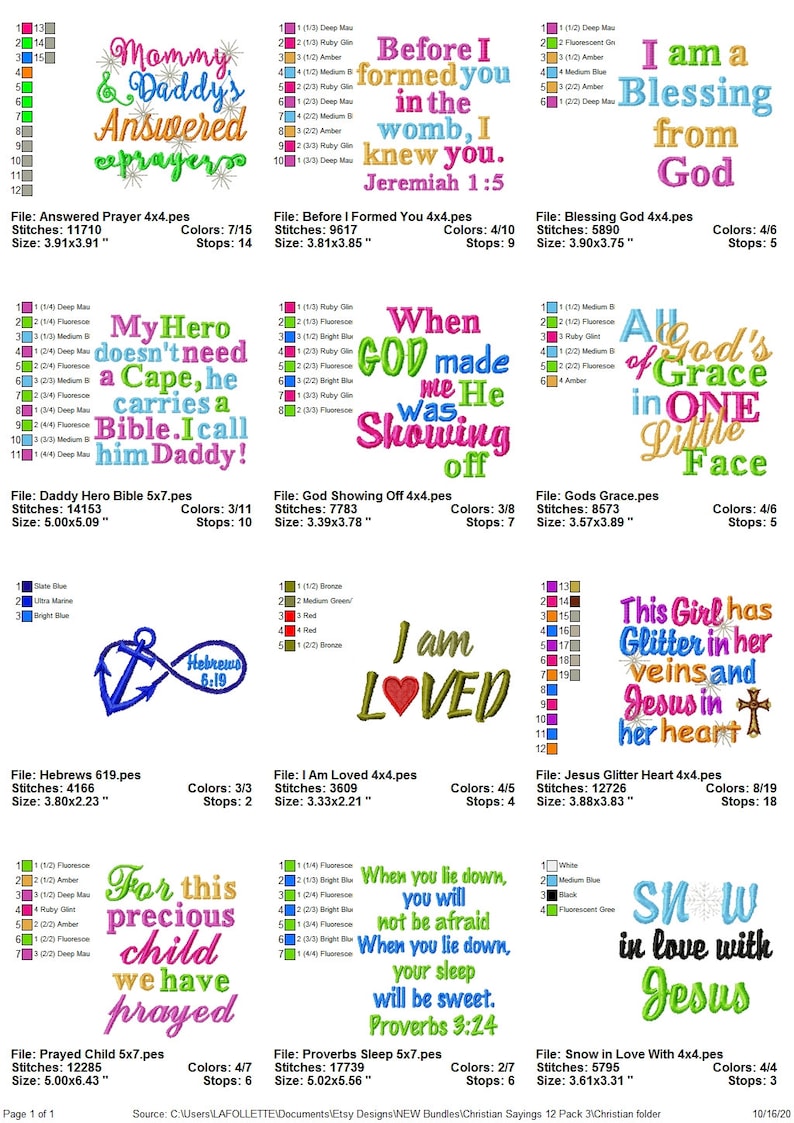 1 13
2 14
3 15
4
5
6
7
8
9
10
11
12
Mommy
& Daddy's
Answered
prayer
File: Answered Prayer 4x4.pes
Stitches: 11710 Colors: 7/15
Size: 3.91x3.91 " Stops: 14
1 1 (1/3) Deep Mau
2 2 (1/3) Ruby Glin
3 3 (1/2) Amber
4 4 (1/2) Medium B
5 2 (2/3) Ruby Glin
6 1 (2/3) Deep Mau
7 4 (2/2) Medium B
8 3 (2/2) Amber
9 2 (3/3) Ruby Glin
10 1 (3/3) Deep Mau
Before I
formed you
in the
womb, I
knew you.
Jeremiah 1:5
File: Before I Formed You 4x4.pes
Stitches: 9617 Colors: 4/10
Size: 3.81x3.85 " Stops: 9
1 1 (1/2) Deep Mau
2 2 Fluorescent Gr
3 3 (1/2) Amber
4 4 Medium Blue
5 3 (2/2) Amber
6 1 (2/2) Deep Mau
I am a
Blessing
from
God
File: Blessing God 4x4.pes
Stitches: 5890 Colors: 4/6
Size: 3.90x3.75 " Stops: 5
1 1 (1/4) Deep Mau
2 2 (1/4) Fluoresce
3 3 (1/3) Medium B
4 1 (2/4) Deep Mau
5 2 (2/4) Fluoresce
6 3 (2/3) Medium B
7 2 (3/4) Fluoresce
8 1 (3/4) Deep Mau
9 2 (4/4) Fluoresce
10 3 (3/3) Medium B
11 1 (4/4) Deep Mau
My Hero
doesn't need
a Cape, he
carries a
Bible. I call
him Daddy!
File: Daddy Hero Bible 5x7.pes
Stitches: 14153 Colors: 3/11
Size: 5.00x5.09 " Stops: 10
1 1 (1/3) Ruby Glin
2 2 (1/3) Fluoresce
3 3 (1/2) Bright Blue
4 1 (2/3) Ruby Glin
5 2 (2/3) Fluoresce
6 3 (2/2) Bright Blue
7 1 (3/3) Ruby Glin
8 2 (3/3) Fluoresce
When
GOD made
me He
was
Showing
off
File: God Showing Off 4x4.pes
Stitches: 7783 Colors: 3/8
Size: 3.39x3.78 " Stops: 7
1 1 (1/2) Medium B
2 2 (1/2) Fluoresce
3 3 Ruby Glint
4 1 (2/2) Medium B
5 2 (2/2) Fluoresce
6 4 Amber
All
God's
of Grace
in ONE
Little
Face
File: Gods Grace.pes
Stitches: 8573 Colors: 4/6
Size: 3.57x3.89 " Stops: 5
1 Slate Blue
2 Ultra Marine
3 Bright Blue
Hebrews
6:19
File: Hebrews 619.pes
Stitches: 4166 Colors: 3/3
Size: 3.80x2.23 " Stops: 2
1 1 (1/2) Bronze
2 2 Medium Green/
3 3 Red
4 4 Red
5 1 (2/2) Bronze
I am
LOVED
File: I Am Loved 4x4.pes
Stitches: 3609 Colors: 4/5
Size: 3.33x2.21 " Stops: 4
1 13
2 14
3 15
4 16
5 17
6 18
7 19
8
9
10
11
12
This Girl has
Glitter in her
veins and
Jesus in
her heart
File: Jesus Glitter Heart 4x4.pes
Stitches: 12726 Colors: 8/19
Size: 3.88x3.83 " Stops: 18
1 1 (1/2) Fluoresce
2 2 (1/2) Amber
3 3 (1/2) Deep Mau
4 4 Ruby Glint
5 2 (2/2) Amber
6 1 (2/2) Fluoresce
7 3 (2/2) Deep Mau
For this
precious
child
we have
prayed
File: Prayed Child 5x7.pes
Stitches: 12285 Colors: 4/7
Size: 5.00x6.43 " Stops: 6
1 1 (1/4) Fluoresce
2 2 (1/3) Bright Blue
3 1 (2/4) Fluoresce
4 2 (2/3) Bright Blue
5 1 (3/4) Fluoresce
6 2 (3/3) Bright Blue
7 1 (4/4) Fluoresce
When you lie down,
you will
not be afraid
When you lie down,
your sleep
will be sweet.
Proverbs 3:24
File: Proverbs Sleep 5x7.pes
Stitches: 17739 Colors: 2/7
Size: 5.02x5.56 " Stops: 6
1 White
2 Medium Blue
3 Black
4 Fluorescent Gree
SNOW
in love with
Jesus
File: Snow in Love With 4x4.pes
Stitches: 5795 Colors: 4/4
Size: 3.61x3.31 " Stops: 3
Page 1 of 1 Source: C:\Users\LAFOLLETTE\Documents\Etsy Designs\NEW Bundles\Christian Sayings 12 Pack 3\Christian folder 10/16/20